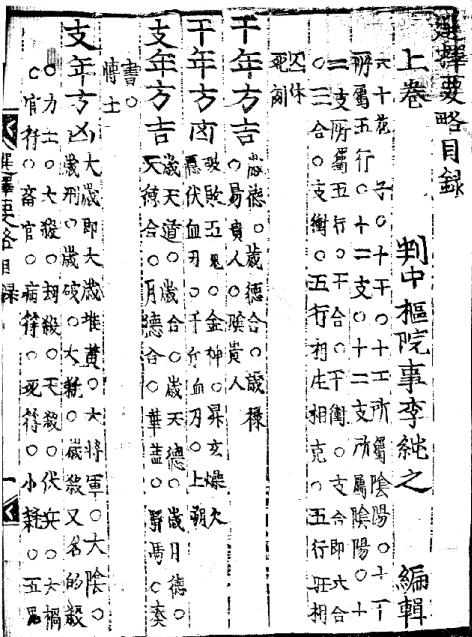 選擇要略目録
上巻 判中樞院事李純之 編輯
六十花 子○十干○十干所屬陰陽○十干
所屬五行○十二支○十二支所屬陰陽○十
二支所屬五行○干合○干衝○支合即六合
○三合○支衝○五行相生相克○五行旺相
囚休
死刻
干年方吉
歲德○歲德合○歲祿
○易貴人○陰貴人
干年方凶
破敗五鬼○金神○昇玄燥火
隱伏血刃○千斤血刃○上朔
支年方吉
歲天道○歲合○歲天德○歲月德○
天德合○月德合○華蓋○驛馬○奏
書○
博士
支年方凶
大歲即大歲堆黃○大將軍○大陰○
歲刑○歲破○大耗○歲殺又名的殺
○力士○大殺○劫殺○天殺○伏兵○大禍
○官符○畜官○病符○死符○小耗○五鬼
選擇要略目録 一